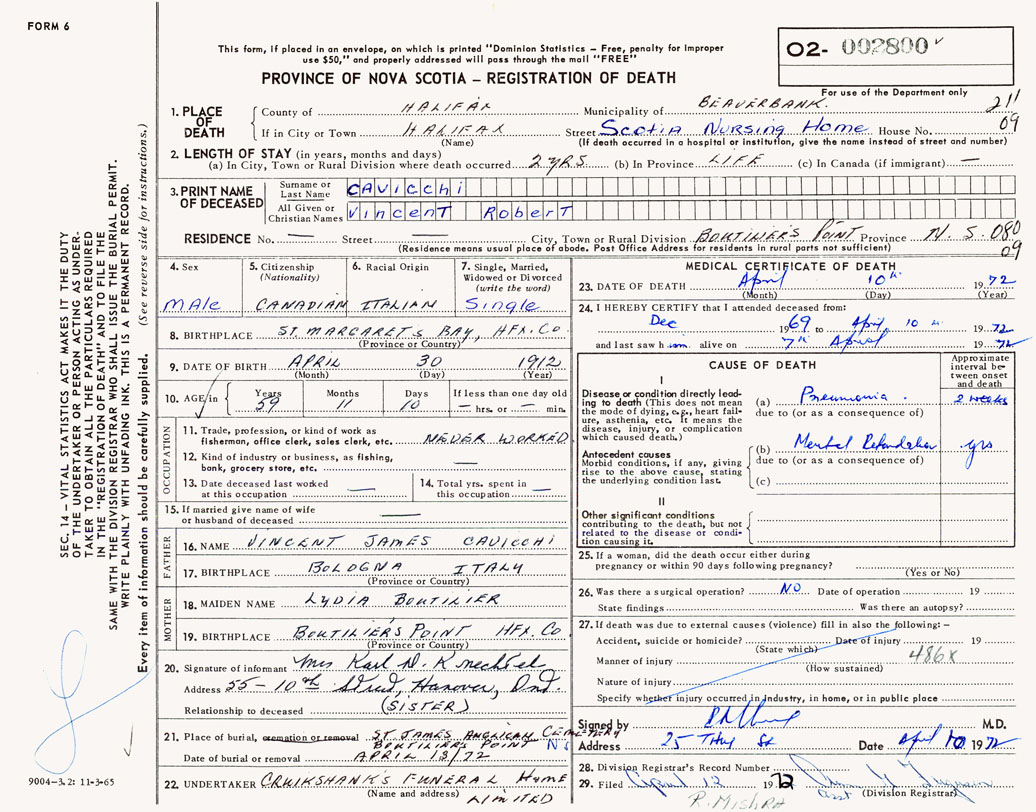 FORM 6
This form, if placed in an envelope, on which is printed "Dominion Statistics – Free, penalty for improper
use $50," and properly addressed will pass through the mail "FREE"
PROVINCE OF NOVA SCOTIA – REGISTRATION OF DEATH
O2- 002800
For use of the Department only
211
09
1. PLACE OF DEATH
County of HALIFAX Municipality of BEAVERBANK.
If in City or Town HALIFAX Street Scotia Nursing Home House No.
(Name) (If death occurred in a hospital or institution, give the name instead of street and number)
2. LENGTH OF STAY (in years, months and days)
(a) In City, Town or Rural Division where death occurred 2 YRS (b) In Province LIFE (c) In Canada (if immigrant) —
3. PRINT NAME OF DECEASED
Surname or Last Name CAVICCHI
All Given or Christian Names Vincent Robert
RESIDENCE No. — Street — City, Town or Rural Division BOUTILIER'S POINT Province N.S. 080
(Residence means usual place of abode. Post Office Address for residents in rural parts not sufficient) 09
4. Sex
MAle
5. Citizenship (Nationality)
CANADIAN
6. Racial Origin
ITALIAN
7. Single, Married, Widowed or Divorced (write the word)
Single
8. BIRTHPLACE ST. MARGARETS BAY, HFX. CO.
(Province or Country)
9. DATE OF BIRTH APRIL 30 1912
(Month) (Day) (Year)
10. AGE in
Years 59 Months 11 Days 10 If less than one day old — hrs. or — min.
OCCUPATION
11. Trade, profession, or kind of work as
fisherman, office clerk, sales clerk, etc. NEVER WORKED
12. Kind of industry or business, as fishing,
bank, grocery store, etc. —
13. Date deceased last worked
at this occupation —
14. Total yrs. spent in
this occupation —
15. If married give name of wife
or husband of deceased —
FATHER
16. NAME VINCENT JAMES CAVICCHI
17. BIRTHPLACE BOLOGNA ITALY
(Province or Country)
MOTHER
18. MAIDEN NAME LYDIA BOUTILIER
19. BIRTHPLACE BOUTILIERS POINT HFX. CO.
(Province or Country)
20. Signature of informant Mrs Karl D. Knechtel
Address 55 – 10th Street, Hanover, Ont.
Relationship to deceased (SISTER)
21. Place of burial, cremation or removal ST. JAMES ANGLICAN CEMETERY
BOUTILIERS POINT N S
Date of burial or removal APRIL 13/72
22. UNDERTAKER CRUIKSHANK'S FUNERAL HOME
(Name and address) LIMITED
MEDICAL CERTIFICATE OF DEATH
23. DATE OF DEATH April 10th 1972
(Month) (Day) (Year)
24. I HEREBY CERTIFY that I attended deceased from:
Dec 1969 to April, 10th 1972
and last saw him alive on 7th April 1972
CAUSE OF DEATH
Approximate interval between onset and death
I
Disease or condition directly leading to death (This does not mean the mode of dying, e.g., heart failure, asthenia, etc. It means the disease, injury, or complication which caused death.)
(a) Pneumonia. 2 weeks
due to (or as a consequence of)
Antecedent causes
Morbid conditions, if any, giving rise to the above cause, stating the underlying condition last.
(b) Mental Retardation yrs
due to (or as a consequence of)
(c)
II
Other significant conditions
contributing to the death, but not related to the disease or condition causing it.
25. If a woman, did the death occur either during
pregnancy or within 90 days following pregnancy?
(Yes or No)
26. Was there a surgical operation? NO Date of operation 19
State findings Was there an autopsy?
27. If death was due to external causes (violence) fill in also the following: –
Accident, suicide or homicide? Date of injury 19
(State which)
Manner of injury 486X
(How sustained)
Nature of injury
Specify whether injury occurred in Industry, in home, or in public place
Signed by M.D.
Address 25 St Date April 10 1972
28. Division Registrar's Record Number
29. Filed April 12 1972
asst (Division Registrar)
R. MISHRA
SEC. 14 – VITAL STATISTICS ACT MAKES IT THE DUTY
OF THE UNDERTAKER OR PERSON ACTING AS UNDER-
TAKER TO OBTAIN ALL THE PARTICULARS REQUIRED
IN THE "REGISTRATION OF DEATH" AND TO FILE THE
SAME WITH THE DIVISION REGISTRAR WHO SHALL ISSUE THE BURIAL PERMIT.
WRITE PLAINLY WITH UNFADING INK. THIS IS A PERMANENT RECORD.
Every item of information should be carefully supplied. (See reverse side for instructions.)
9004-3.2: 11-3-65